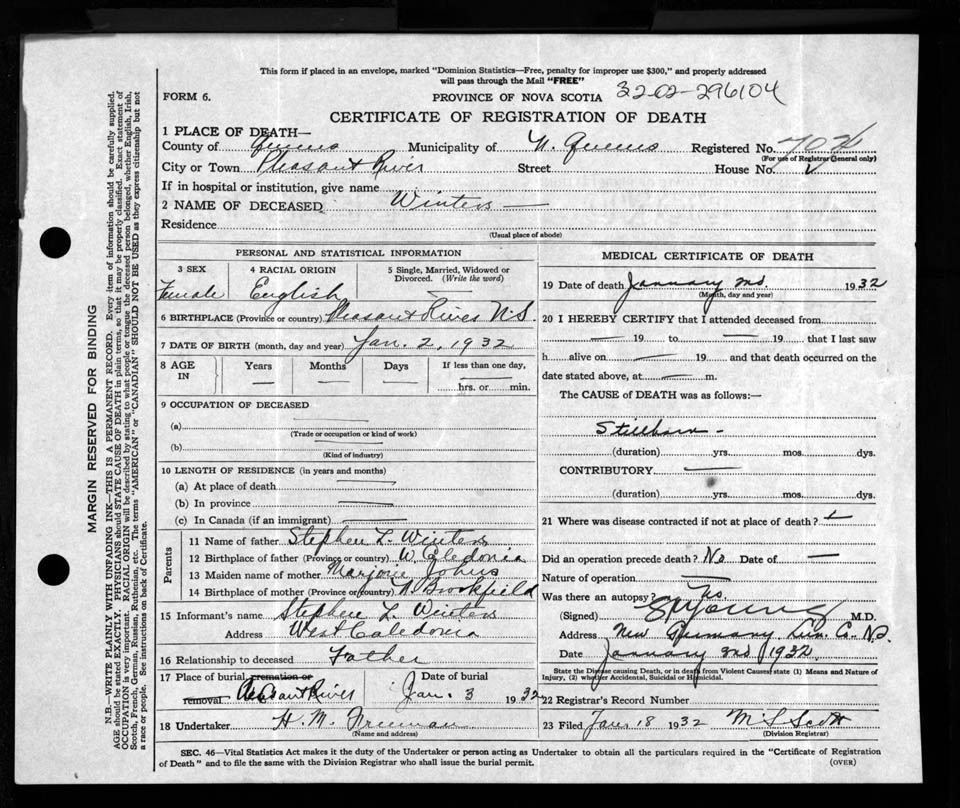 This form if placed in an envelope, marked "Dominion Statistics—Free, penalty for improper use $300," and properly addressed
will pass through the Mail "FREE"
FORM 6.
PROVINCE OF NOVA SCOTIA
3202-296104
CERTIFICATE OF REGISTRATION OF DEATH
1 PLACE OF DEATH—
County of Queens Municipality of N. Queens Registered No.
(For use of Registrar General only)
City or Town Pleasant River Street House No.
If in hospital or institution, give name
2 NAME OF DECEASED Winters —
Residence
(Usual place of abode)
PERSONAL AND STATISTICAL INFORMATION
3 SEX 4 RACIAL ORIGIN 5 Single, Married, Widowed or
Divorced. (Write the word)
Female English —
6 BIRTHPLACE (Province or country) Pleasant River N.S.
7 DATE OF BIRTH (month, day and year) Jan. 2, 1932
8 AGE Years Months Days If less than one day,
IN — — — hrs. or min.
9 OCCUPATION OF DECEASED
(a)
(Trade or occupation or kind of work)
(b)
(Kind of industry)
10 LENGTH OF RESIDENCE (in years and months)
(a) At place of death
(b) In province
(c) In Canada (if an immigrant)
Parents
11 Name of father Stephen L. Winters
12 Birthplace of father (Province or country) W. Caledonia
13 Maiden name of mother Marjorie Johns
14 Birthplace of mother (Province or country) N Brookfield
15 Informant's name Stephen L Winters
Address West Caledonia
16 Relationship to deceased Father
17 Place of burial cremation or Date of burial
removal Pleasant River Jan. 3 1932
18 Undertaker H. M. Freeman
(Name and address)
MEDICAL CERTIFICATE OF DEATH
19 Date of death January 2nd 1932
(Month, day and year)
20 I HEREBY CERTIFY that I attended deceased from
— 19 to — 19 that I last saw
h alive on — 19 and that death occurred on the
date stated above, at — m.
The CAUSE of DEATH was as follows:—
Stillborn —
(duration) yrs. mos. dys.
CONTRIBUTORY —
(duration) yrs. mos. dys.
21 Where was disease contracted if not at place of death?
Did an operation precede death? No Date of —
Nature of operation —
Was there an autopsy? No.
(Signed) Young M.D.
Address New Germany Lun. Co. N.S.
Date January 2nd 1932
State the Disease causing Death, or in death from Violent Causes state (1) Means and Nature of
Injury, (2) whether Accidental, Suicidal or Homicidal.
22 Registrar's Record Number
23 Filed Jan 18 1932 M L Scott
(Division Registrar)
SEC. 46—Vital Statistics Act makes it the duty of the Undertaker or person acting as Undertaker to obtain all the particulars required in the "Certificate of Registration
of Death" and to file the same with the Division Registrar who shall issue the burial permit. (OVER)
MARGIN RESERVED FOR BINDING
N.B.—WRITE PLAINLY WITH UNFADING INK—THIS IS A PERMANENT RECORD. Every item of information should be carefully supplied.
AGE should be stated EXACTLY. PHYSICIANS should STATE CAUSE OF DEATH in plain terms, so that it may be properly classified. Exact statement of
OCCUPATION is very important. RACIAL ORIGIN will be described by stating to what people or tongue the deceased person belonged, whether English, Irish,
Scotch, French, German, Russian, Ruthenian, etc. The terms "AMERICAN" or "CANADIAN" SHOULD NOT BE USED as they express citizenship but not
a race or people. See instructions on back of Certificate.